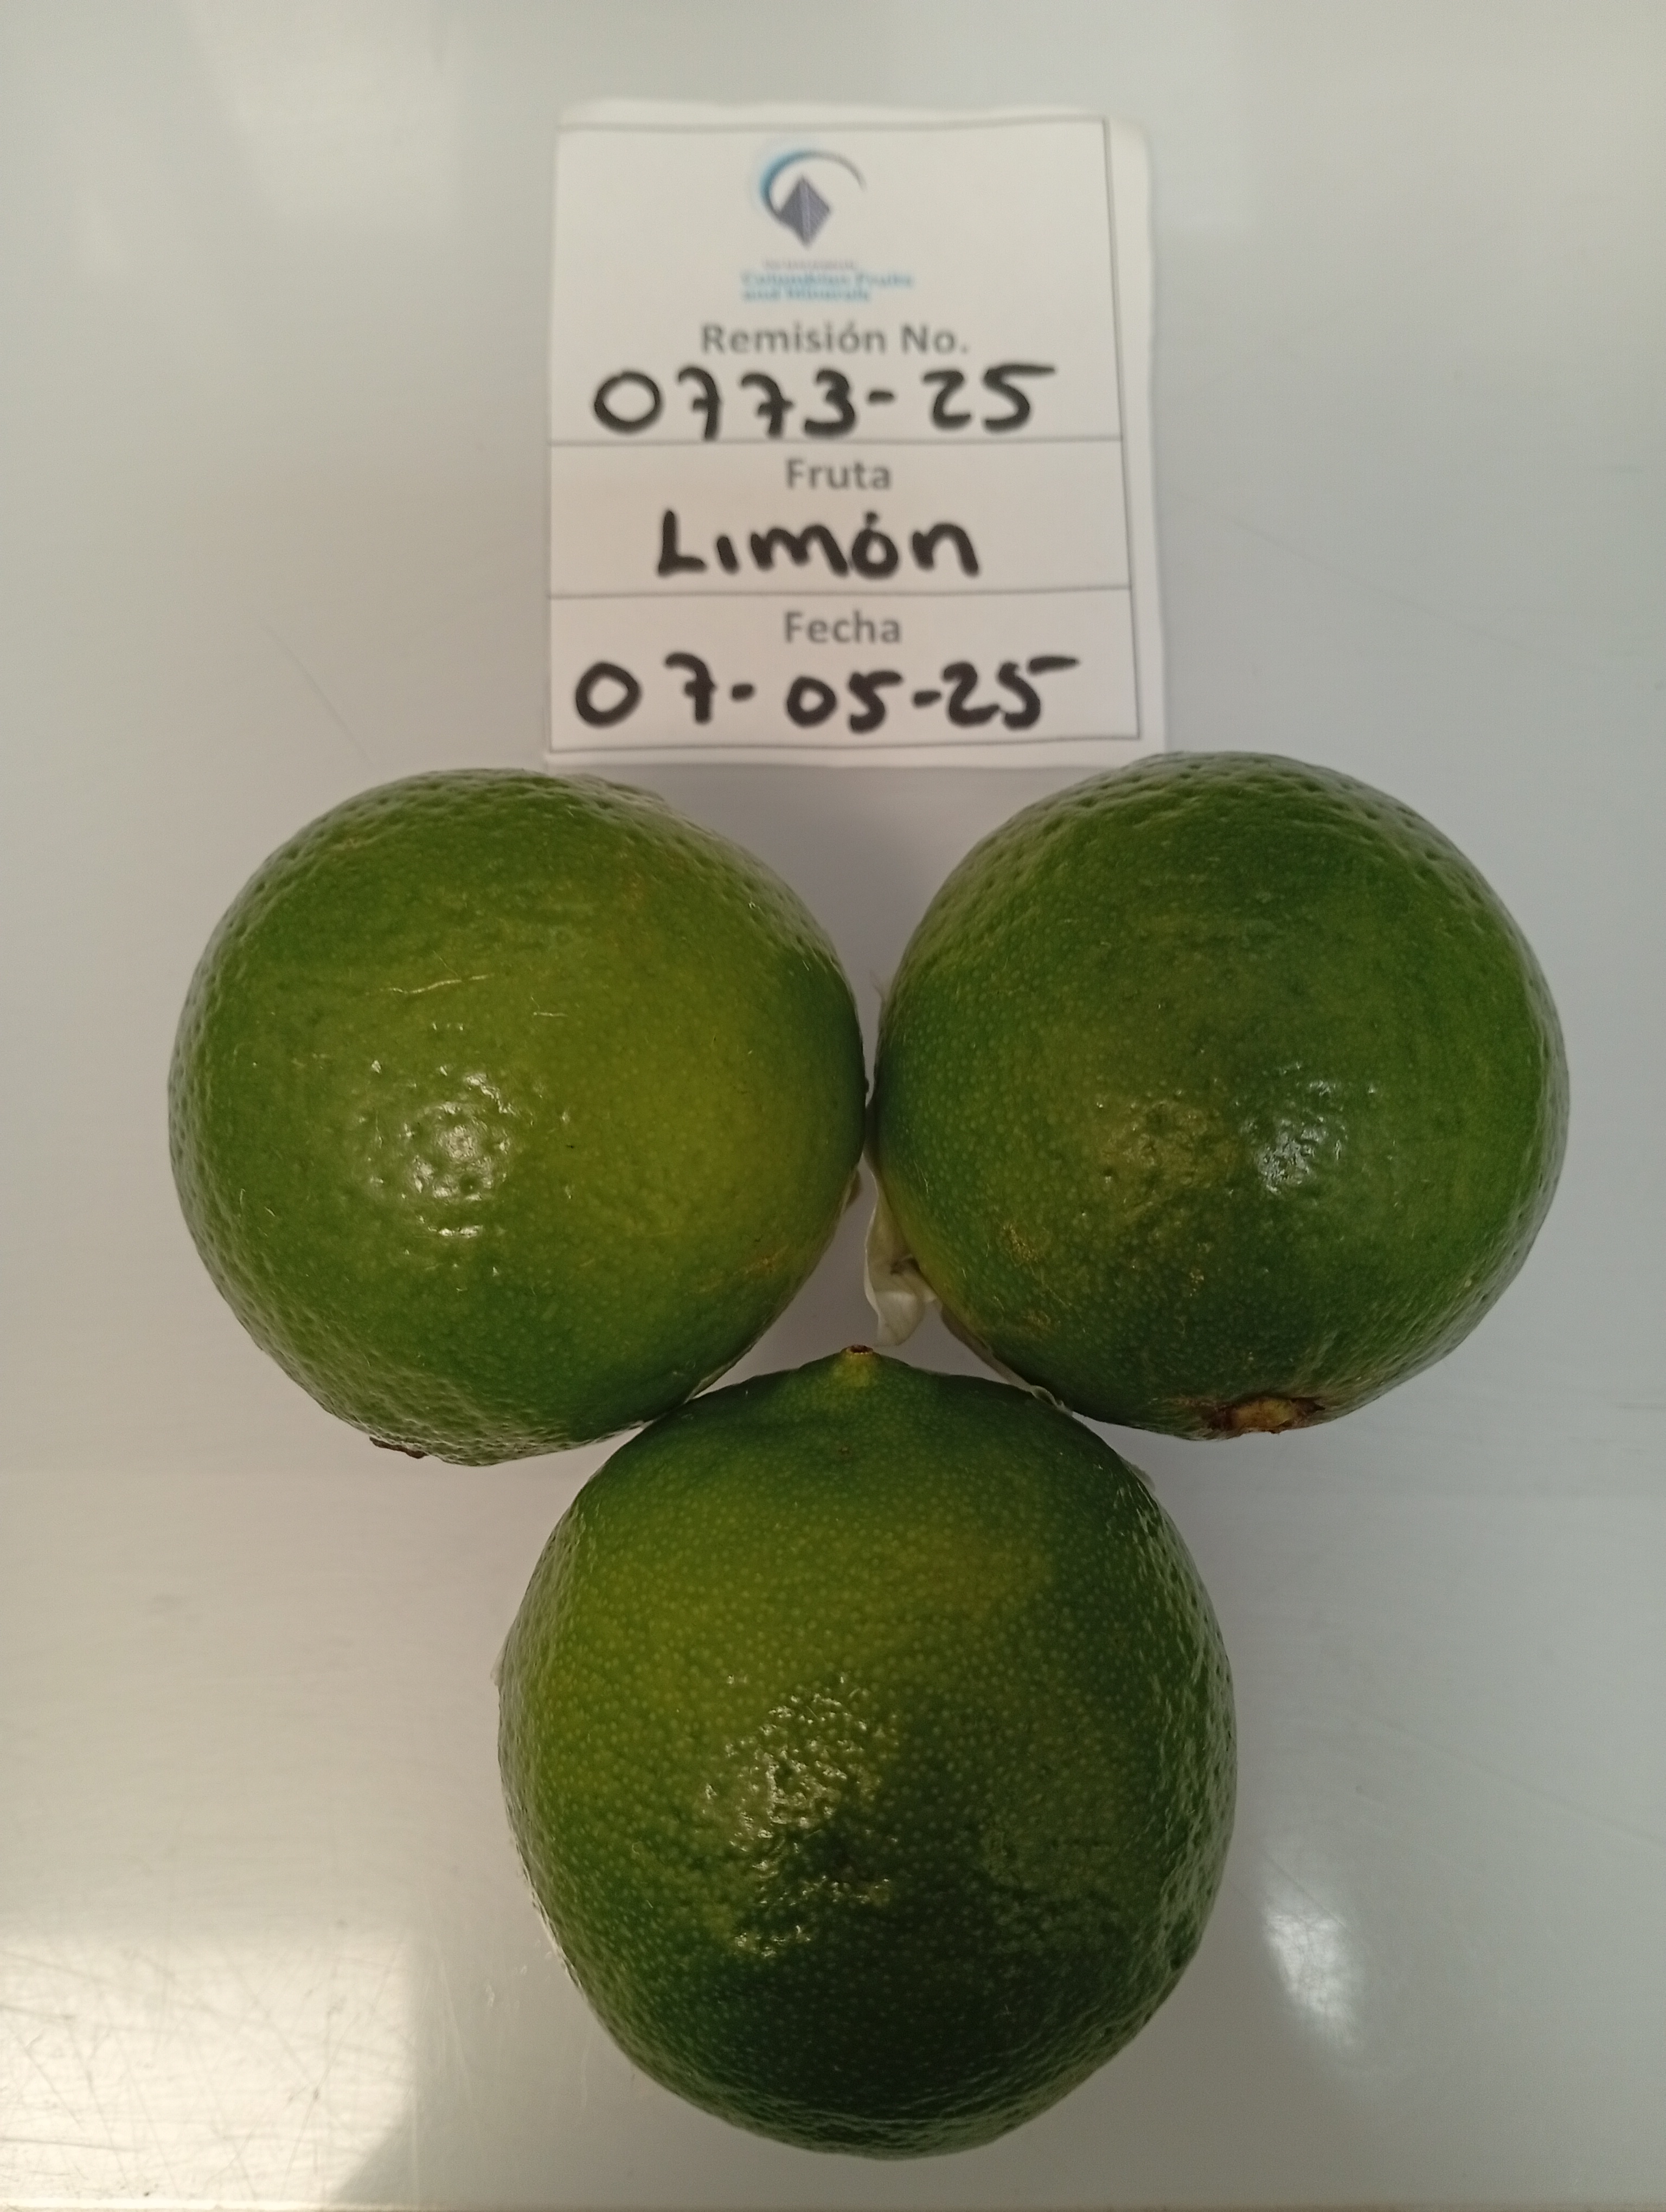 Colombian Fruits
and Minerals
Remisión No.
0773-25
Fruta
Limón
Fecha
07-05-25